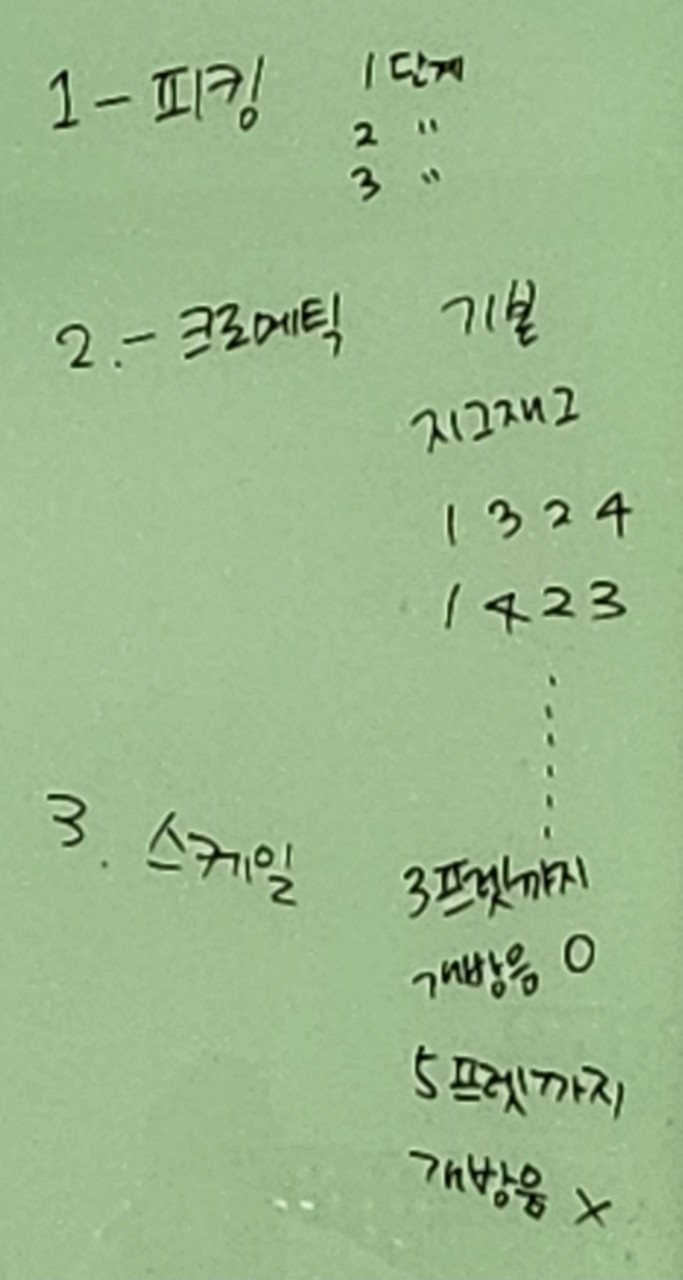 1 - 피킹 1단계
2 〃
3 〃
2. - 크로메틱 기본
지그재그
1 3 2 4
1 4 2 3
3. 스케일 3프렛까지
개방음 O
5프렛까지
개방음 X